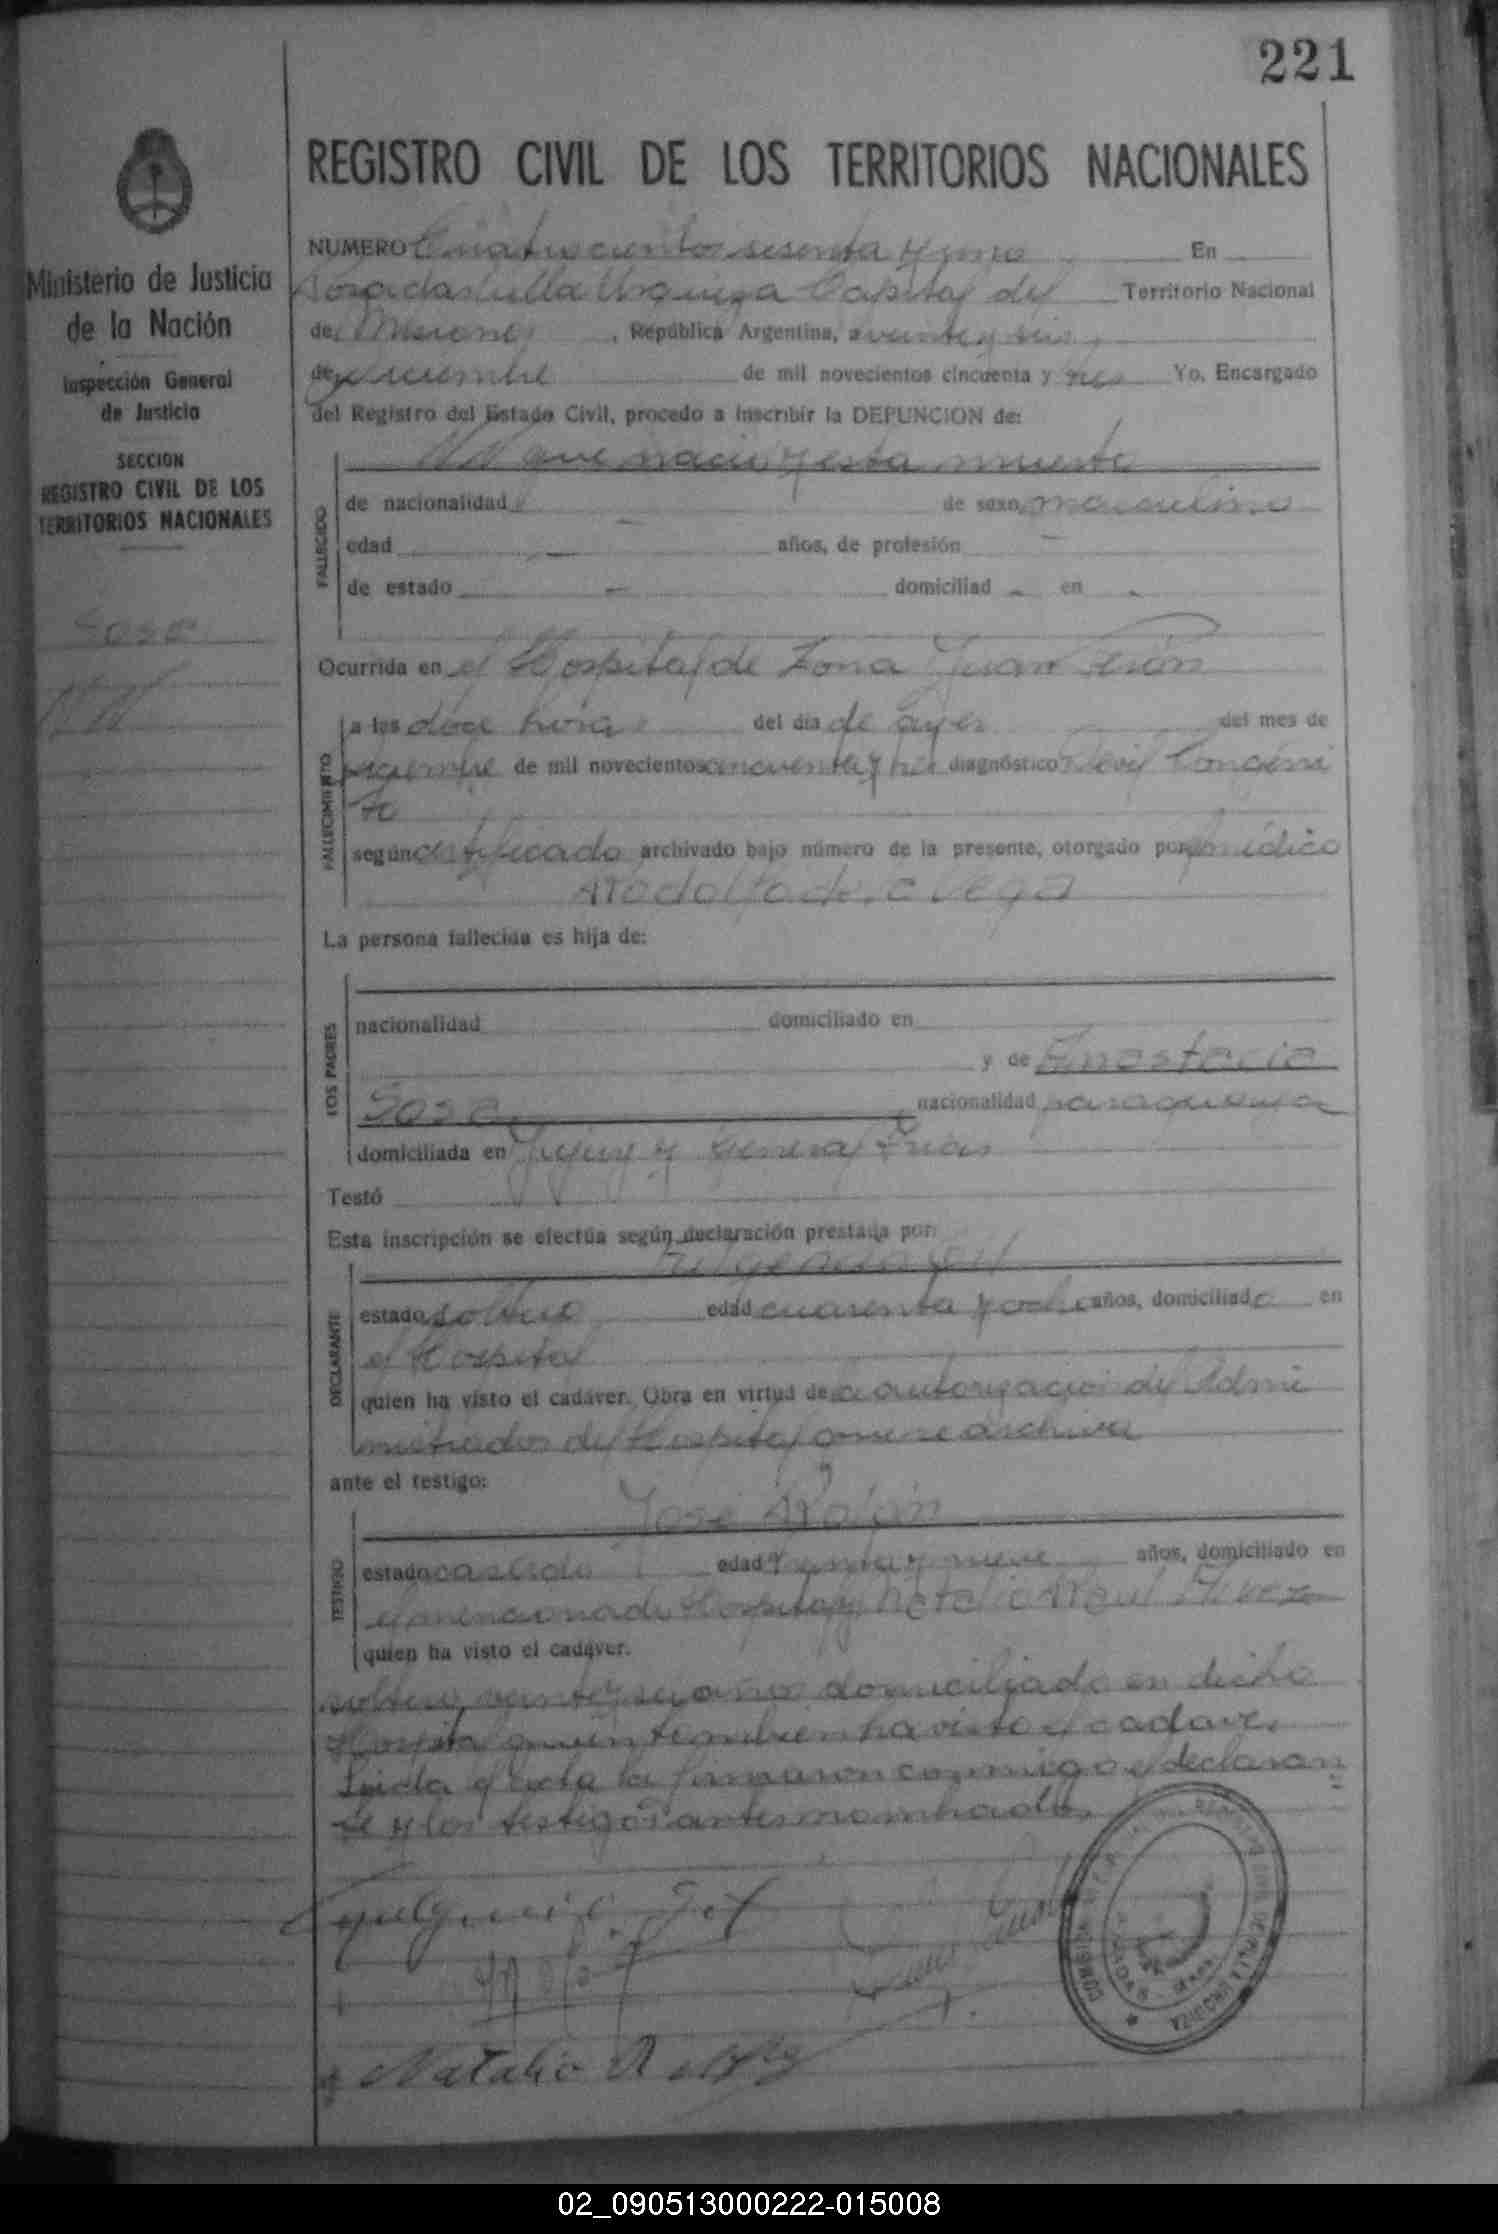 221
REGISTRO CIVIL DE LOS TERRITORIOS NACIONALES
Ministerio de Justicia
de la Nación
Inspección General
de Justicia
SECCION
REGISTRO CIVIL DE LOS
TERRITORIOS NACIONALES
Sosa
NN
NUMERO Cuatrocientos sesenta y uno En
Posadas Villa Urquiza Capital del Territorio Nacional
de Misiones, República Argentina, a veinte y seis
de Diciembre de mil novecientos cincuenta y tres Yo, Encargado
del Registro del Estado Civil, procedo a inscribir la DEFUNCION de:
NN que nacio y esta muerto
FALLECIDO
de nacionalidad - de sexo masculino
edad - años, de profesión -
de estado - domiciliad - en -
Ocurrida en el Hospital de Zona Juan Perón
FALLECIMIENTO
a las doce horas del día de ayer del mes de
Diciembre de mil novecientos cincuenta y tres diagnóstico Devil Congeni
to
según certificado archivado bajo número de la presente, otorgado por el médico
Vega
La persona fallecida es hija de:
LOS PADRES
nacionalidad domiciliado en
y de Anastacia
Sosa, nacionalidad paraguaya
domiciliada en Jujuy y General Frias
Testó
Esta inscripción se efectúa según declaración prestada por:
Fulgencio Gil
DECLARANTE
estado soltero edad cuarenta y ocho años, domiciliado en
el Hospital
quien ha visto el cadáver. Obra en virtud de la autorizacion del Admi
nistrador del Hospital que se archiva
ante el testigo:
José
TESTIGO
estado casado edad treinta y nueve años, domiciliado en
el mencionado Hospital y Natalio
quien ha visto el cadáver.
soltero, veinte y seis años domiciliado en dicho
Hospital quien tambien ha visto el cadaver.
Leida el acta la firmaron conmigo el declaran
te y los testigos antes nombrados.
Fulgencio Gil
Natalio R
02_090513000222-015008